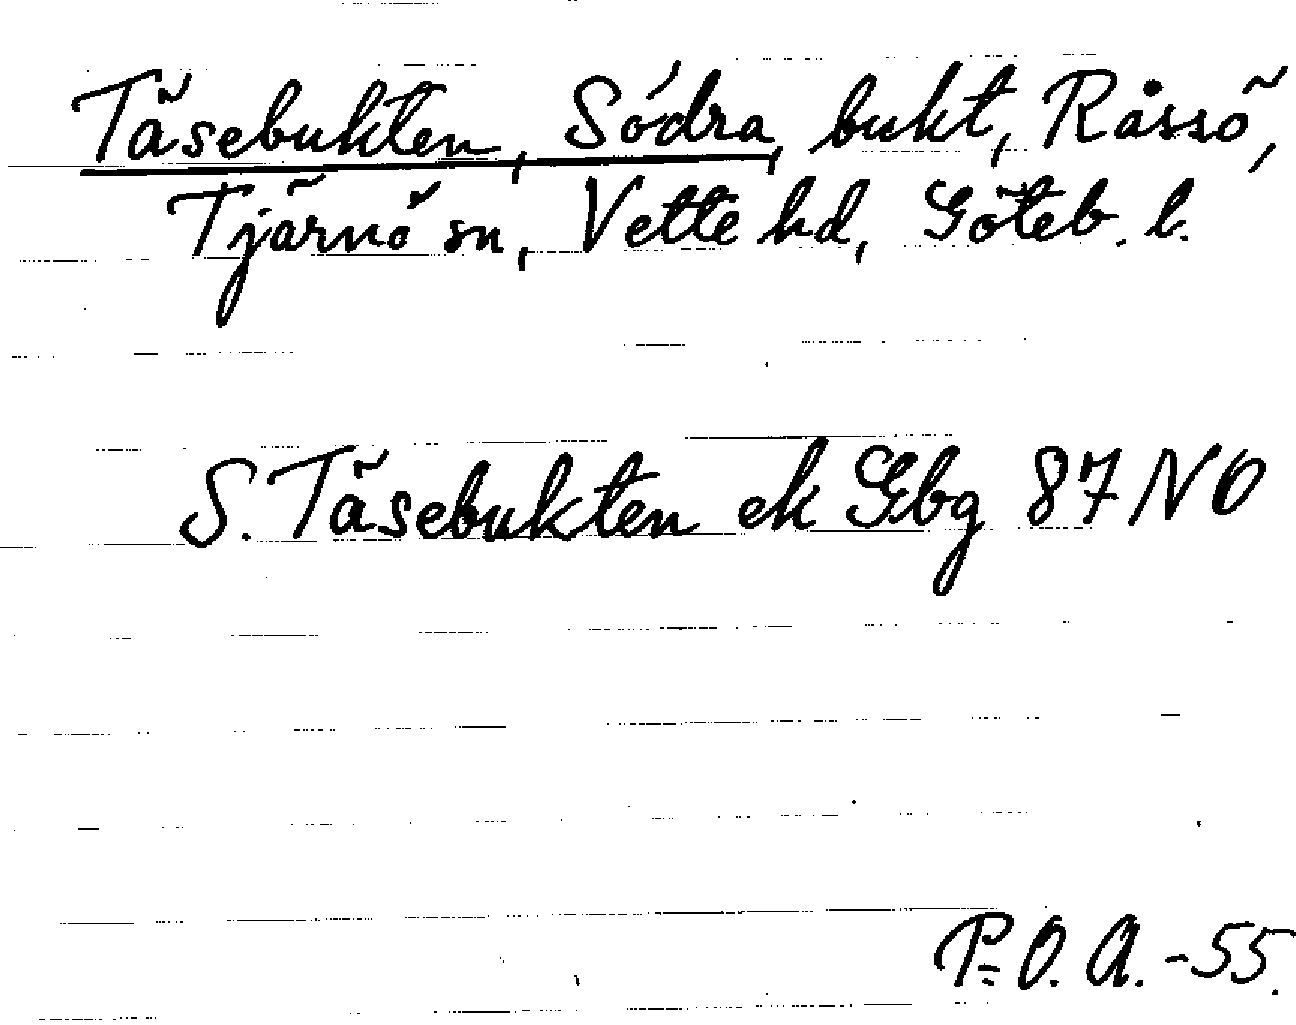 Täsebukten, Södra, bukt, Råssö,
Tjärnö sn, Vette hd, Göteb. l.
S. Täsebukten ek Gbg 87 NO
P.O.A.-55.